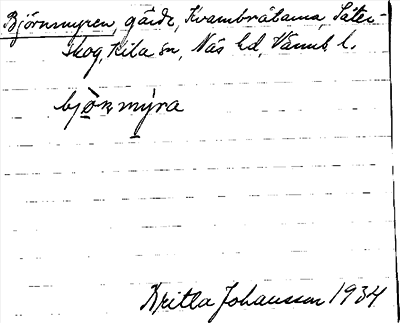 Björnmyren, gärde, Kvambråtarna, Säter-
skog, Kila sn, Näs hd, Värml. l.
bjö̀ṇmýra
Kritla Johansson 1934